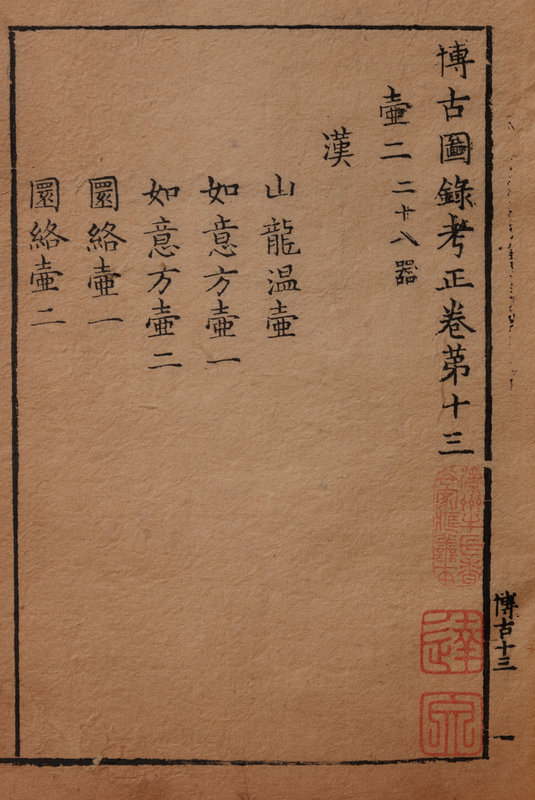 博古圖錄考正卷第十三
壺二 二十八器
漢
山龍温壺
如意方壺一
如意方壺二
圜絡壺一
圜絡壺二
博古十三
一